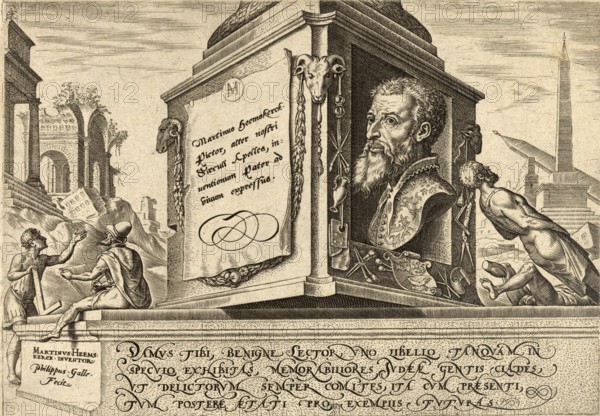 Martinus Heemskerck
Pictor, alter nostri
Sæculi Apelles, in-
uentionum Pater ad
viuum expressus.
MARTINVS HEEMS
KERCK INVENTOR
Philippus Galle
Fecit
DAMVS TIBI, BENIGNE LECTOR, VNO LIBELLO TANQVAM IN
SPECVLO EXHIBITAS, MEMORABILIORES IVDEÆ GENTIS CLADES,
VT DELICTORVM SEMPER COMITES, ITA CVM PRESENTI,
TVM POSTERÆ ÆTATI PRO EXEMPLIS FVTVRAS